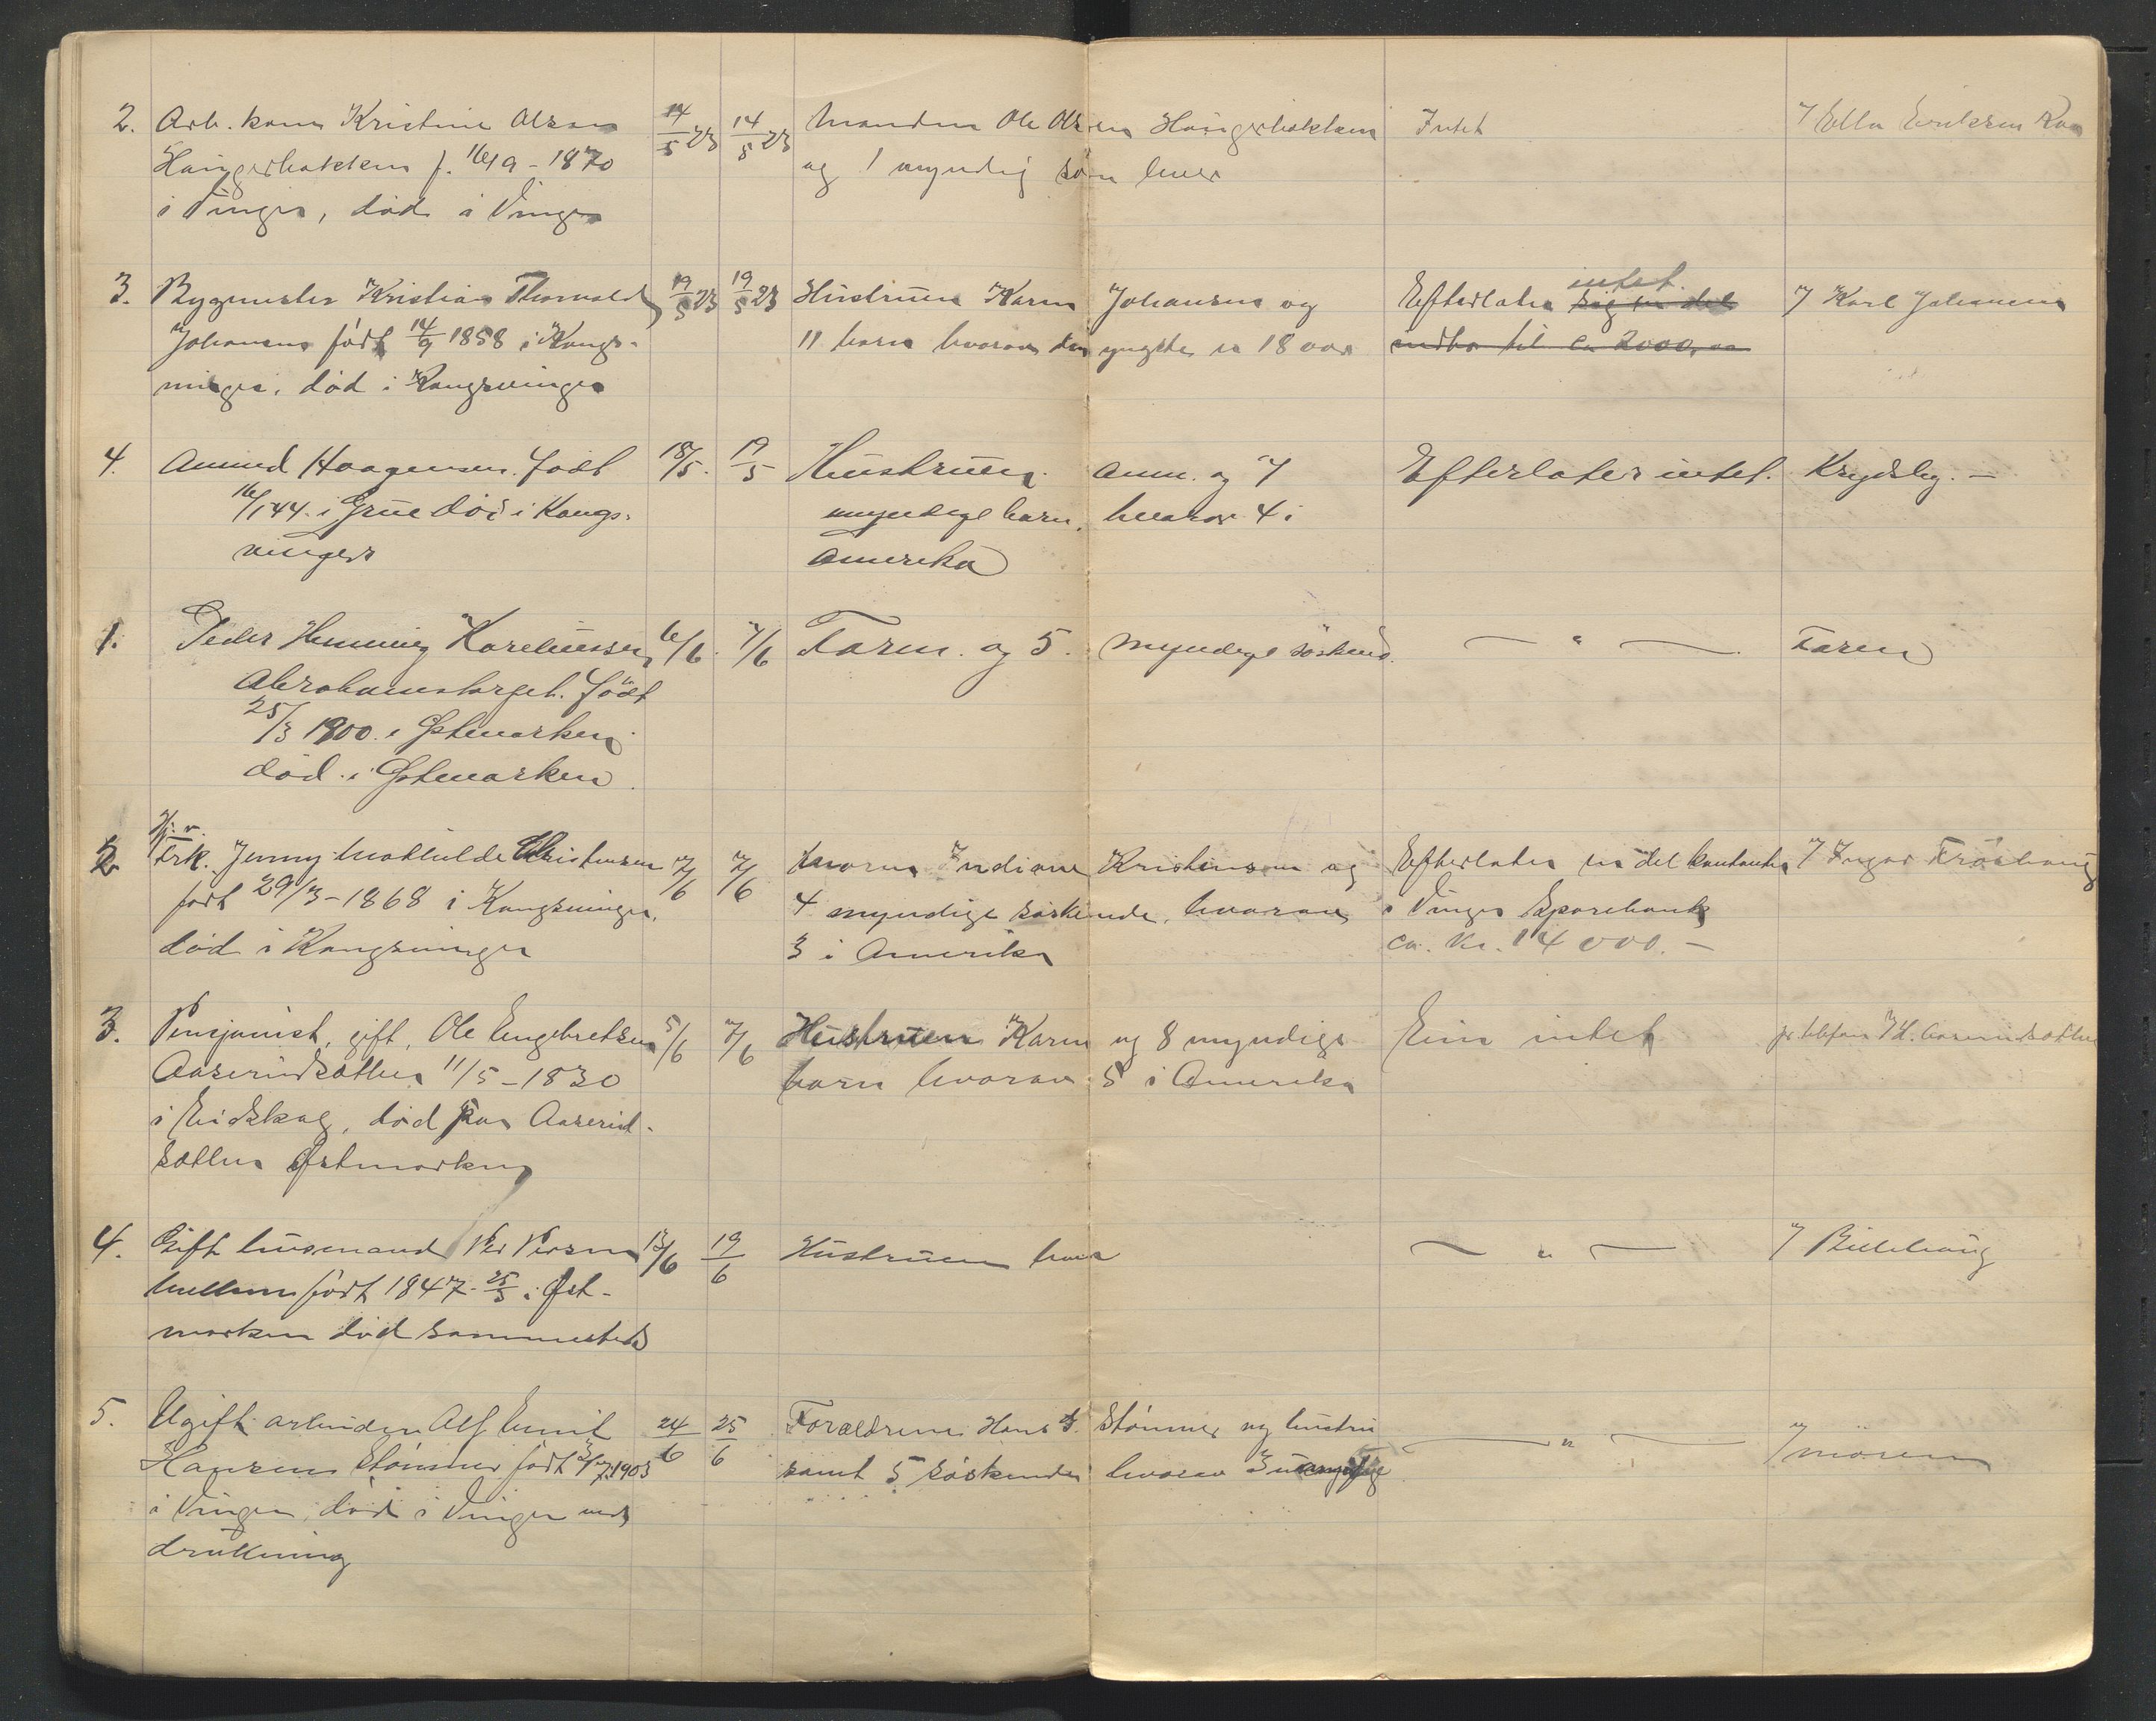 2. Arb. kone Kristine Olsen 14/5 23 14/5 23 Manden Ole Olsen Haugerbakken Intet 7 Ella Eriksen Roa
Haugerbakken f. 16/9 - 1870 og 1 myndig søn lever
i Vinger, død i Vinger
3. Bygmester Kristian Thorvald 19/5 23 19/5 23 Hustruen Karen Johansen og Efterlater intet. 7 Karl Johansen
Johansen født 14/9 1858 i Kongs- 11 barn hvorav den yngste er 18 aar indbo til ca 2000,00
vinger, død i Kongsvinger
4. Amund Haagensen. født 18/5. 19/5 Hustruen. Anne. og 7 Efterlater intet. Krydsby. —
16/1 44. i Grue død i Kongs- myndige barn. hvorav 4 i
vinger Amerika
1. Peder Henning Kareliussen 6/6. 7/6 Faren. og 5. myndige søskend. — " — Faren
Abrahamstorget. født
25/3 1900. i Østmarken
død. i Østmarken.
2. Hj. v.
Frk. Jenny Mathilde Christensen 7/6 7/6 Moren Indiane Kristensen og Efterlater en del kontanter 7 Ingar Frøshaug
født 29/3 - 1868 i Kongsvinger, 4 myndige søskende, hvorav i Vinger Sparebank
død i Kongsvinger 3 i Amerika ca. Kr. 14 000. —
3. Pensjonist, gift, Ole Engebretsen 5/6 7/6 Hustruen Karen og 8 myndige Eier intet pr. telefon 7 H. Aaserudsætten
Aaserudsætten 11/5 - 1830 barn hvorav 5 i Amerika
i Eidskog, død paa Aaserud-
sætten Østmarken
4. Gift husmand Per Persen 13/6 19/6 Hustruen lever — " — 7 Billehaug
Mellem født 1847 25/5 i Øst-
marken død sammesteds
5. Ugift arbeider Alf Emil 24/6 25/6 Forældrene Hans Stømner og hustru — " — 7 moren
Hansen Stømner født 3/7 1903 samt 5 søskende hvorav 3 umyndige
i Vinger, død i Vinger ved
drukning